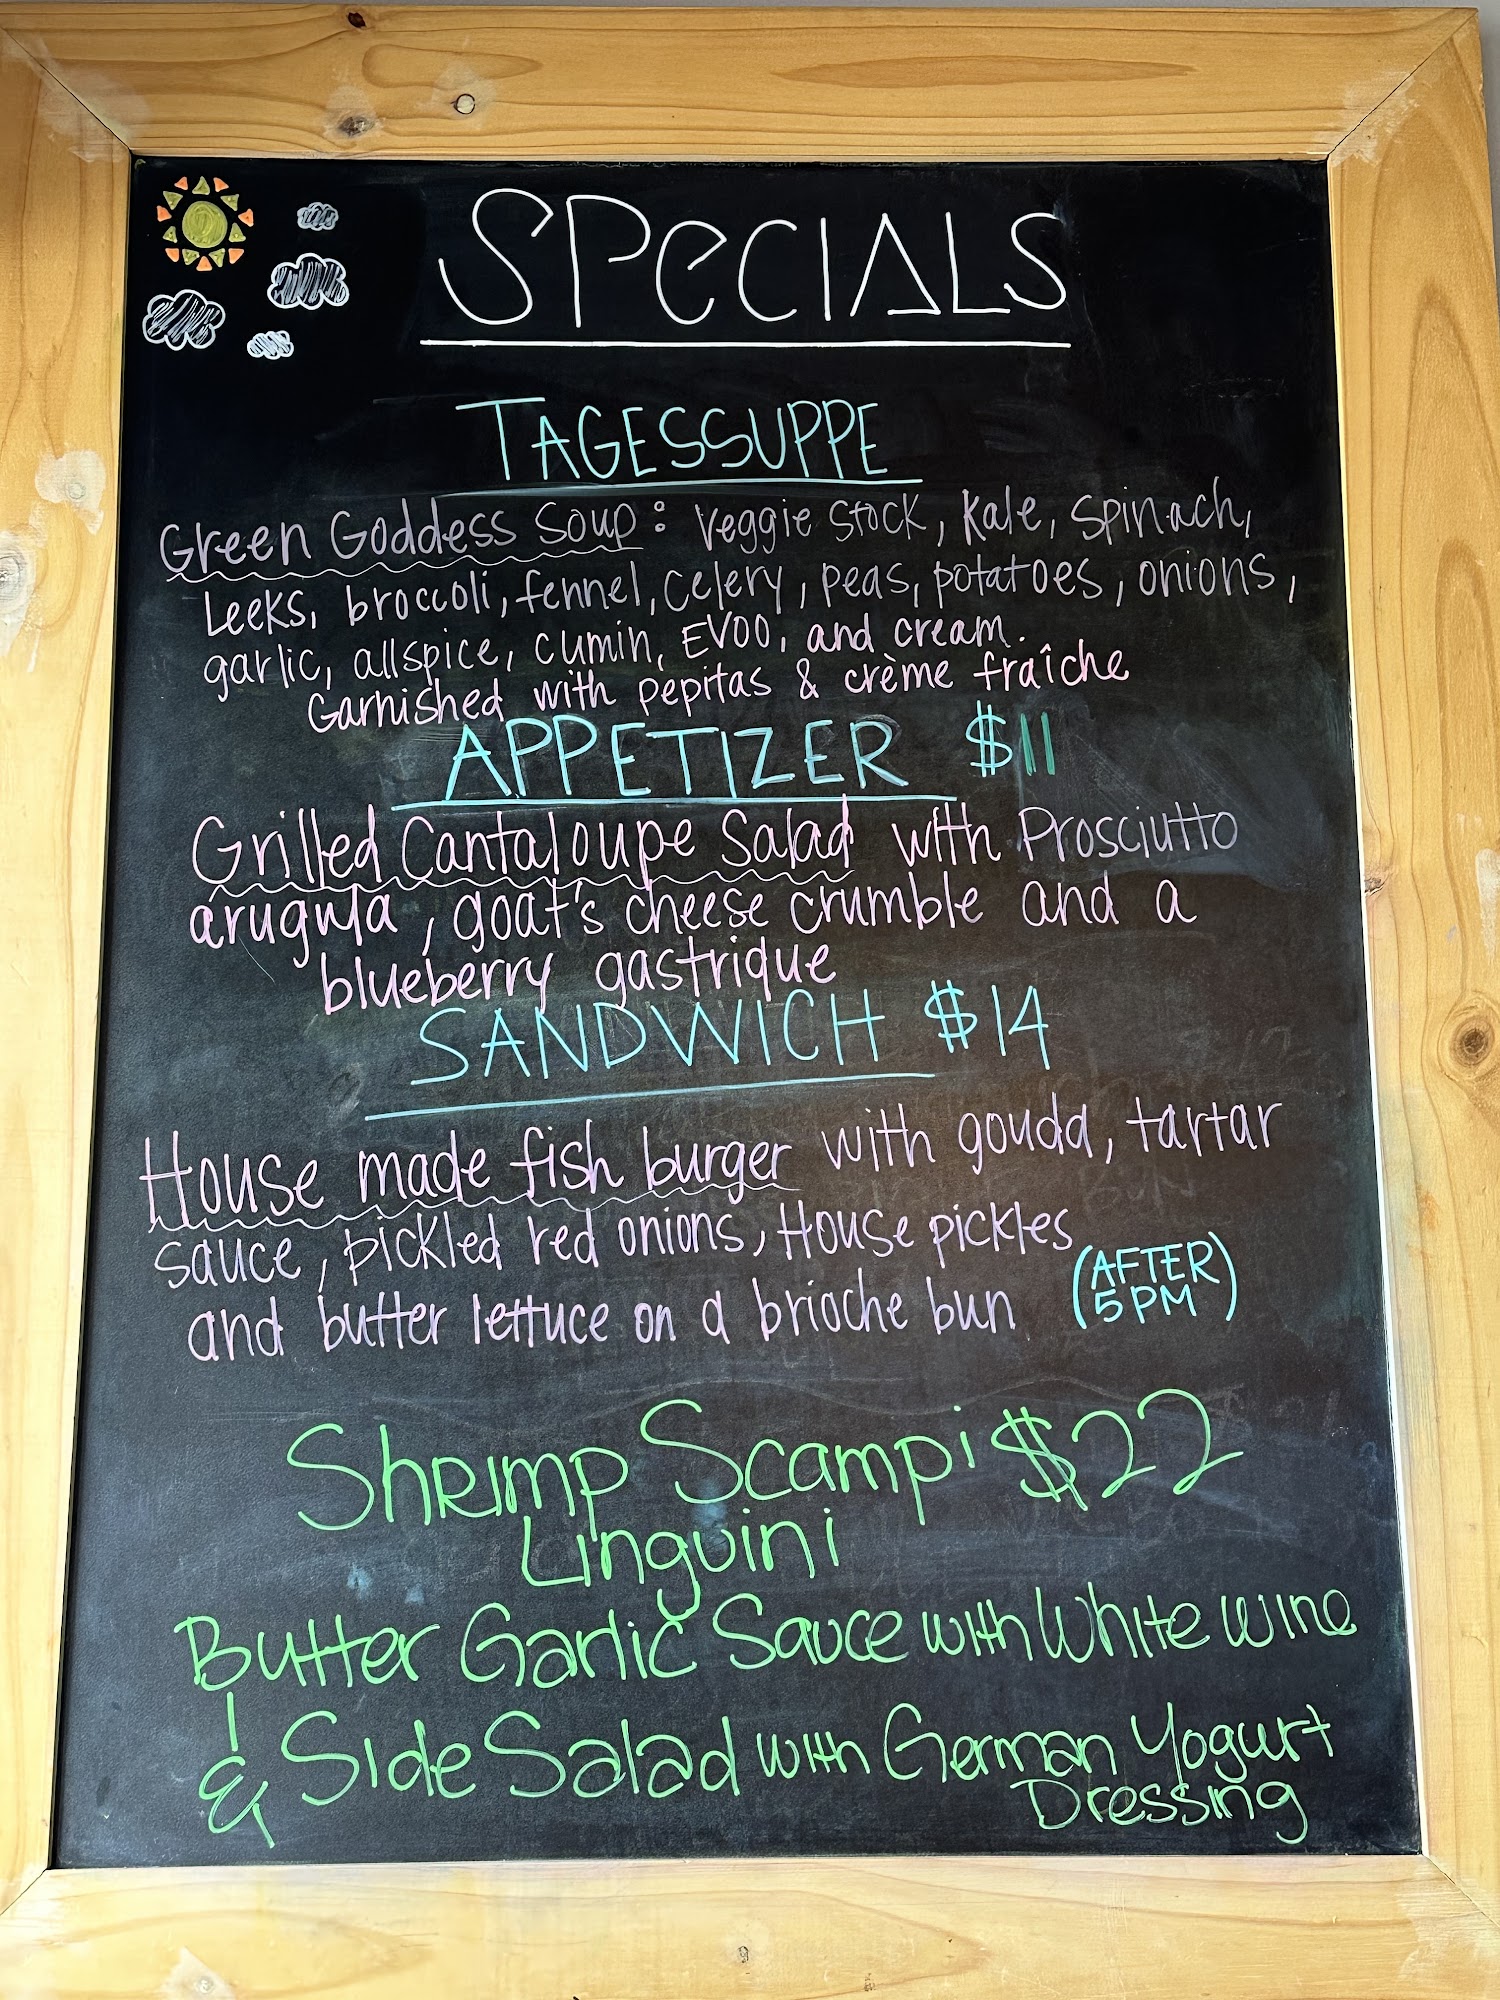 SPeCIALS
TAGESSUPPE
Green Goddess Soup: veggie stock, kale, spinach,
leeks, broccoli, fennel, celery, peas, potatoes, onions,
garlic, allspice, cumin, EVOO, and cream.
Garnished with pepitas & crème fraîche
APPETIZER $11
Grilled Cantaloupe Salad with Prosciutto
arugula, goat's cheese crumble and a
blueberry gastrique
SANDWICH $14
House made fish burger with gouda, tartar
sauce, pickled red onions, House pickles
and butter lettuce on a brioche bun (AFTER
5PM)
Shrimp Scampi $22
Linguini
Butter Garlic Sauce with White wine
& Side Salad with German Yogurt
Dressing